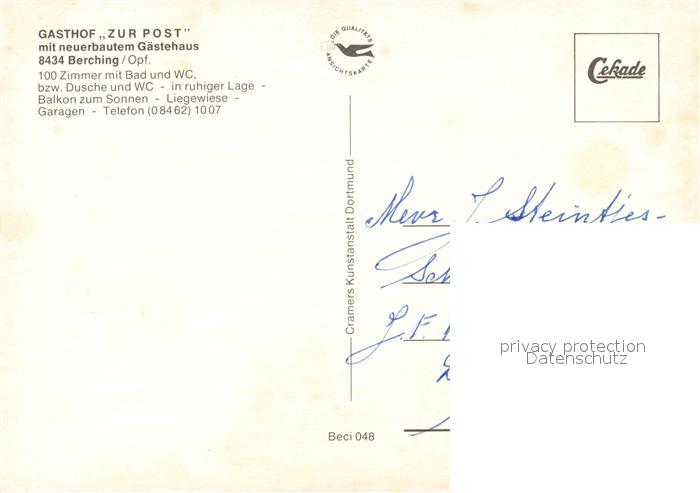 GASTHOF „ZUR POST"
mit neuerbautem Gästehaus
8434 Berching/Opf.
100 Zimmer mit Bad und WC,
bzw. Dusche und WC - in ruhiger Lage -
Balkon zum Sonnen - Liegewiese -
Garagen - Telefon (08462) 1007
DIE QUALITÄTS
ANSICHTSKARTE
Cekade
Cramers Kunstanstalt Dortmund
Mevr. J. Steintjes-
Sch
J.F.
privacy protection
Datenschutz
Beci 048